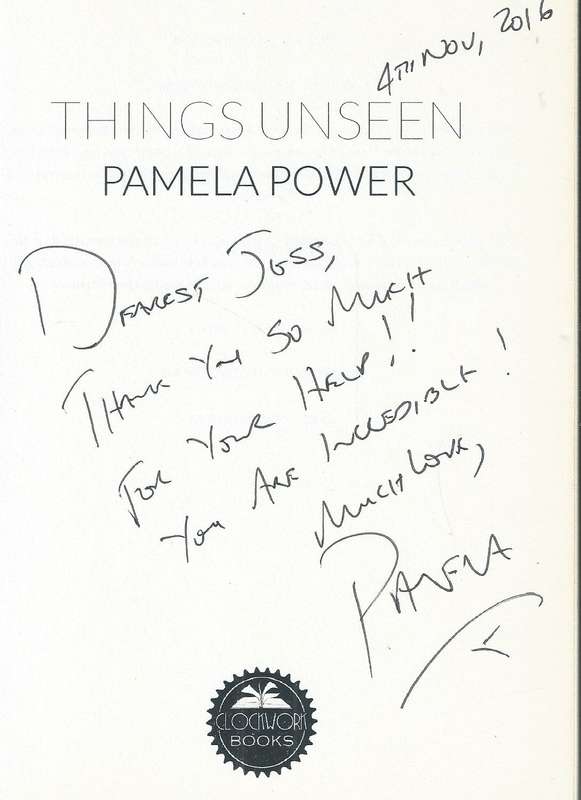 4TH NOV, 2016
THINGS UNSEEN
PAMELA POWER
DEAREST JESS,
THANK YOU SO MUCH
FOR YOUR HELP!!
YOU ARE INCREDIBLE!
MUCH LOVE,
PAMELA
CLOCKWORK
BOOKS